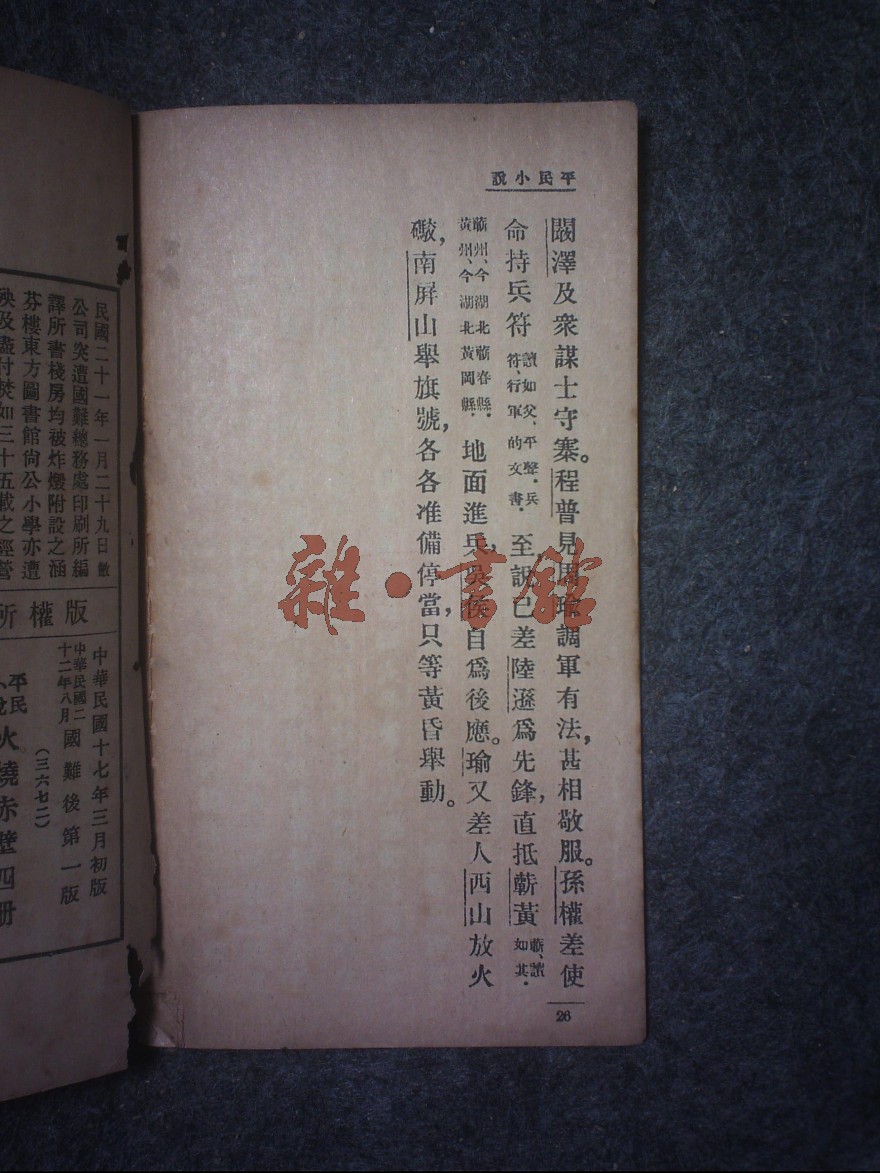 平民小說
闞澤及衆謀士守寨。程普見周瑜調軍有法,甚相敬服。孫權差使
命持兵符讀如父、平聲.兵符、行軍的文書.至,說已差陸遜爲先鋒,直抵蘄黃蘄、讀如其.
蘄州、今湖北蘄春縣.黃州、今湖北黃岡縣.地面進兵,吳侯自爲後應。瑜又差人西山放火
礮,南屏山舉旗號,各各准備停當,只等黃昏舉動。
26
雜·書館
民國二十一年一月二十九日敝
公司突遭國難總務處印刷所編
譯所書棧房均被炸燬附設之涵
芬樓東方圖書館尚公小學亦遭
殃及盡付焚如三十五載之經營
版權所
中華民國十七年三月初版
中華民國二十二年八月國難後第一版
(三六七二)
平民火燒赤壁四册